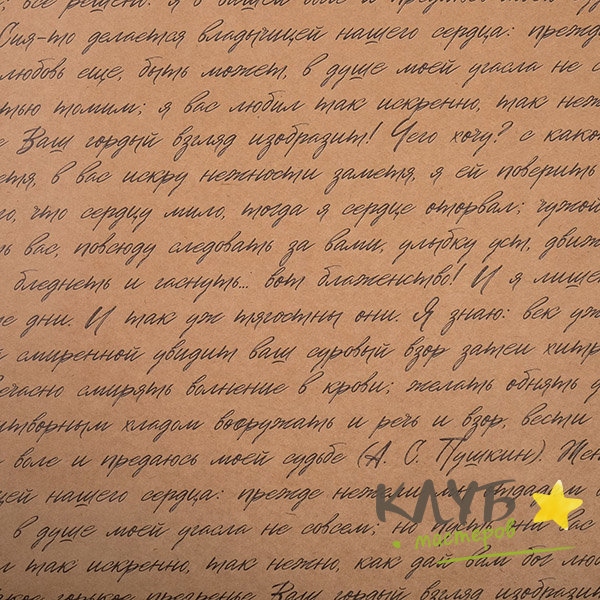 все решено: я в вашей воле и предаюсь моей
Сия-то делается владычицей нашего сердца: прежде
любовь еще, быть может, в душе моей угасла не с
тью томим; я вас любил так искренно, так неж
е Ваш гордый взгляд изобразит! Чего хочу? с како
етя, в вас искру нежности заметя, я ей поверить
го, что сердцу мило, тогда я сердце оторвал; чужой
ь вас, повсюду следовать за вами, улыбку уст, движ
бледнеть и гаснуть... вот блаженство! И я лише
е дни. И так уж тягостны они. Я знаю: век уж
й смиренной увидит ваш суровый взор затеи хитр
ечасно смирять волнение в крови; желать обнять у
итворным хладом вооружать и речь и взор, вести
воле и предаюсь моей судьбе (А. С. Пушкин). Жен
цей нашего сердца: прежде нежели мы отдадим
в душе моей угасла не совсем; но пусть она вас
л так искренно, так нежно, как дай вам бог лю
презренье Ваш гордый взгляд изобразит
КЛУБ
мастеров